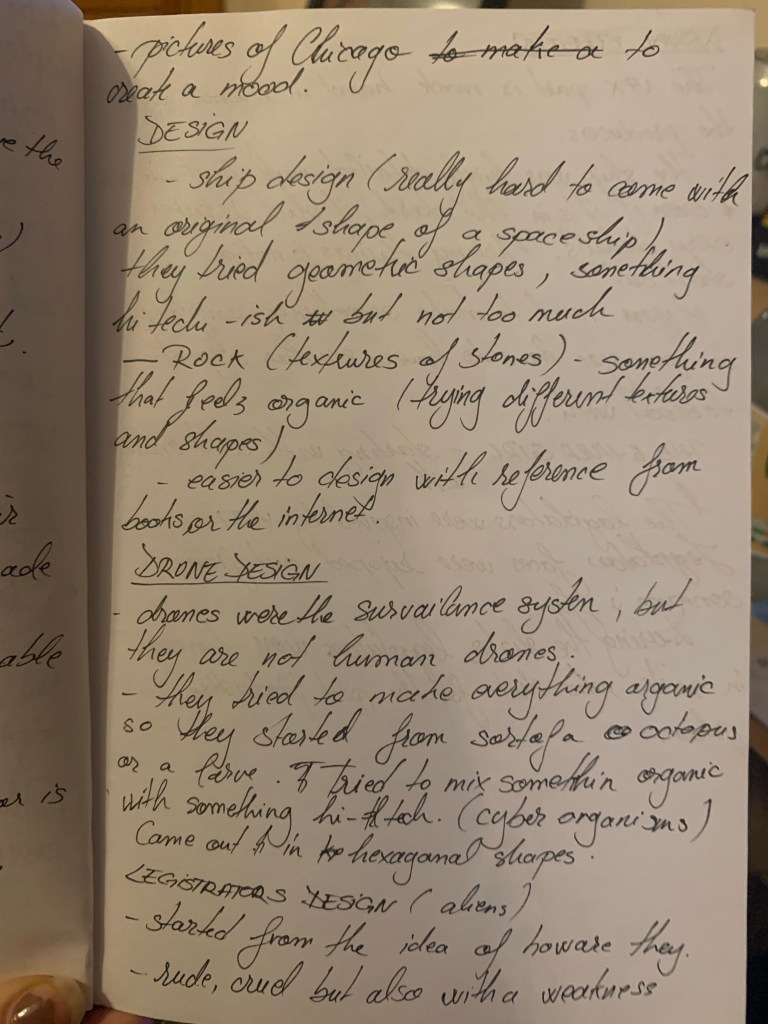 - pictures of Chicago to make a to
create a mood.
DESIGN
- ship design (really hard to come with
an original shape of a spaceship)
they tried geometric shapes, something
hi tech -ish but not too much
— ROCK (textures of stones) - something
that feels organic (trying different textures
and shapes)
- easier to design with reference from
books or the internet.
DRONE DESIGN
- drones were the survailance system, but
they are not human drones.
- they tried to make everything organic
so they started from sortofa octopus
or a larve. tried to mix somethin organic
with something hi-tech. (cyber organisms)
Came out in hexagonal shapes.
LEGISTRATORS DESIGN (aliens)
- started from the idea of howare they.
- rude, cruel but also with a weakness
e the
)
ir
ade
able
er is